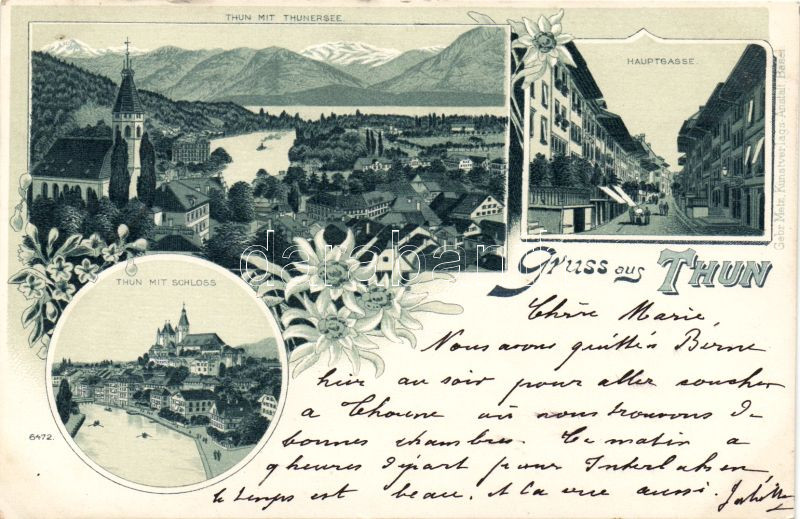 THUN MIT THUNERSEE.
HAUPTGASSE.
Gebr. Metz, Kunstverlags-Anstalt, Basel
darabanth
Gruss aus THUN
THUN MIT SCHLOSS
6472.
Chère Marie
Nous avons quittés Berne
hier au soir pour aller coucher
a Thoune où nous trouvons de
bonnes chambres. Ce matin a
9 heures départ pour Interlaken
le temps est beau, et la vue aussi.